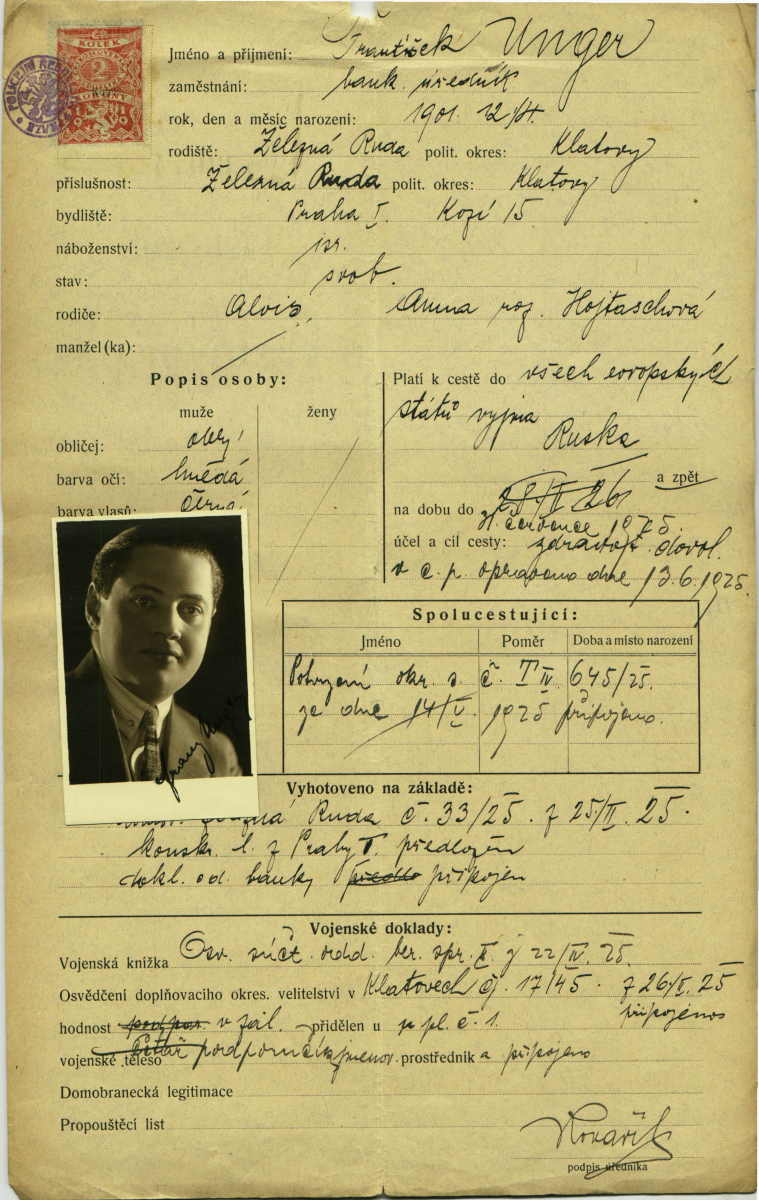 KOLEK
2
Jméno a příjmení: František Unger
zaměstnání: bank. úředník
rok, den a měsíc narození: 1901. 12/4.
rodiště: Železná Ruda polit. okres: Klatovy
příslušnost: Železná Ruda polit. okres: Klatovy
bydliště: Praha I. Kozí 15
náboženství: isr.
stav: svob.
rodiče: Alois, Anna roz. Hojtaschová
manžel (ka):
Popis osoby:
muže ženy
obličej: obly
barva očí: hnědá
barva vlasů: černá
Platí k cestě do všech evropských
států vyjma
Ruska
a zpět
na dobu do
31. července 1925.
účel a cíl cesty: zdravot. dovol.
v č. p. opraveno dne 13.6.1925.
Spolucestující:
Jméno Poměr Doba a místo narození
Potvrzení okr. s. č. T IV 645/25.
ze dne 14/V. 1925 připojeno.
Franz Unger
Vyhotoveno na základě:
Ruda č. 33/25. z 25/II. 25.
konskr. l. z Prahy I. předložen
dokl. od. banky předlo připojen
Vojenské doklady:
Vojenská knížka Osv. súčt. odd. ber. spr. z 22/IV. 25.
Osvědčení doplňovacího okres. velitelství v Klatovech čj. 17145. z 26/I. 25
připojeno
hodnost v zál. přidělen u p. pl. č. 1.
vojenské těleso jmenov. prostředník a připojeno
Domobranecká legitimace
Propouštěcí list
Kovařík
podpis úředníka